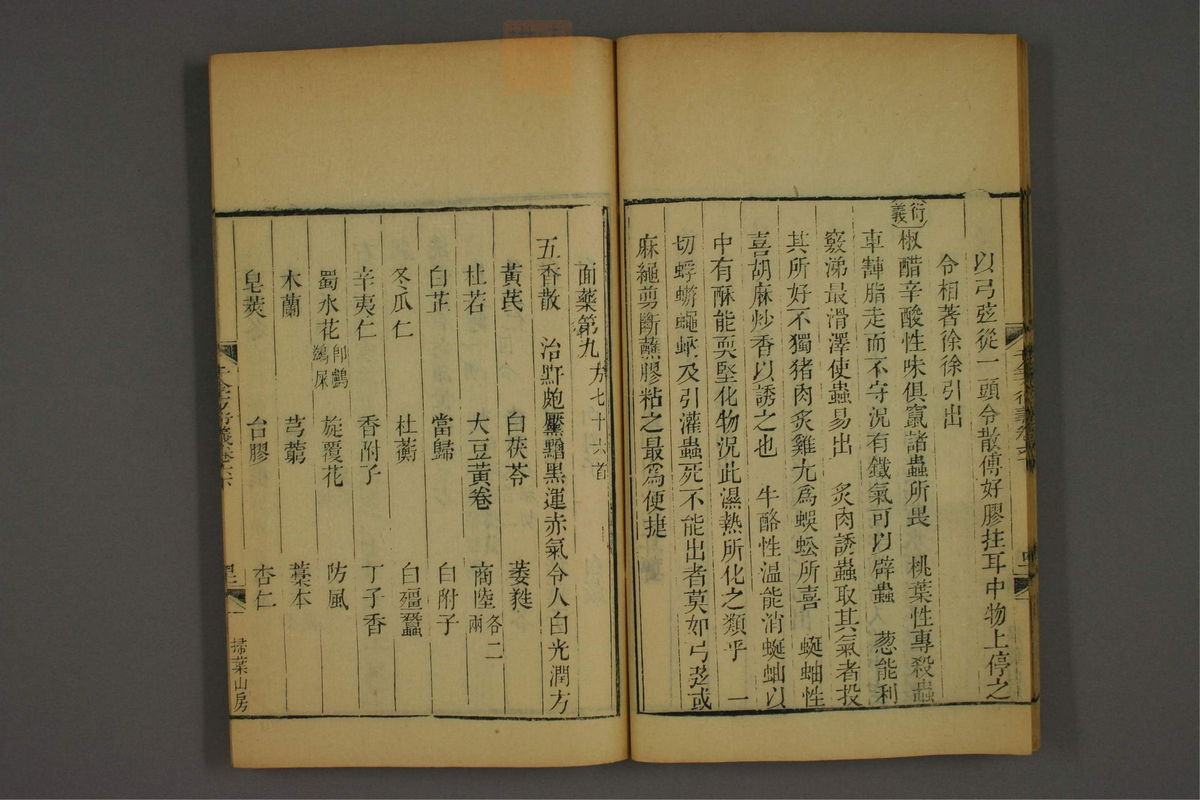 以弓弦從一頭令散傅好膠拄耳中物上停之
令相著徐徐引出
衍義
椒醋辛酸性味俱竄諸蟲所畏 桃葉性專殺蟲
車轊脂走而不守況有鐵氣可以辟蟲 葱能利
竅涕最滑澤使蟲易出 炙肉誘蟲取其氣者投
其所好不獨猪肉炙雞尤爲蜈蚣所喜 蜒蚰性
喜胡麻炒香以誘之也 牛酪性温能消蜒蚰以
中有酥能耎堅化物況此濕熱所化之類乎 一
切蜉蝣蠅蚊及引灌蟲死不能出者莫如弓弦或
麻繩剪斷蘸膠粘之最爲便捷
面藥第九 方七十六首
五香散 治䵟皰黶黯黑運赤氣令人白光潤方
黃芪 白茯苓 萎蕤
杜若 大豆黃卷 商陸各二兩
白芷 當歸 白附子
冬瓜仁 杜蘅 白殭蠶
辛夷仁 香附子 丁子香
蜀水花卽鸕鷀屎 旋覆花 防風
木蘭 芎藭 藁本
皂莢 白膠 杏仁
掃葉山房